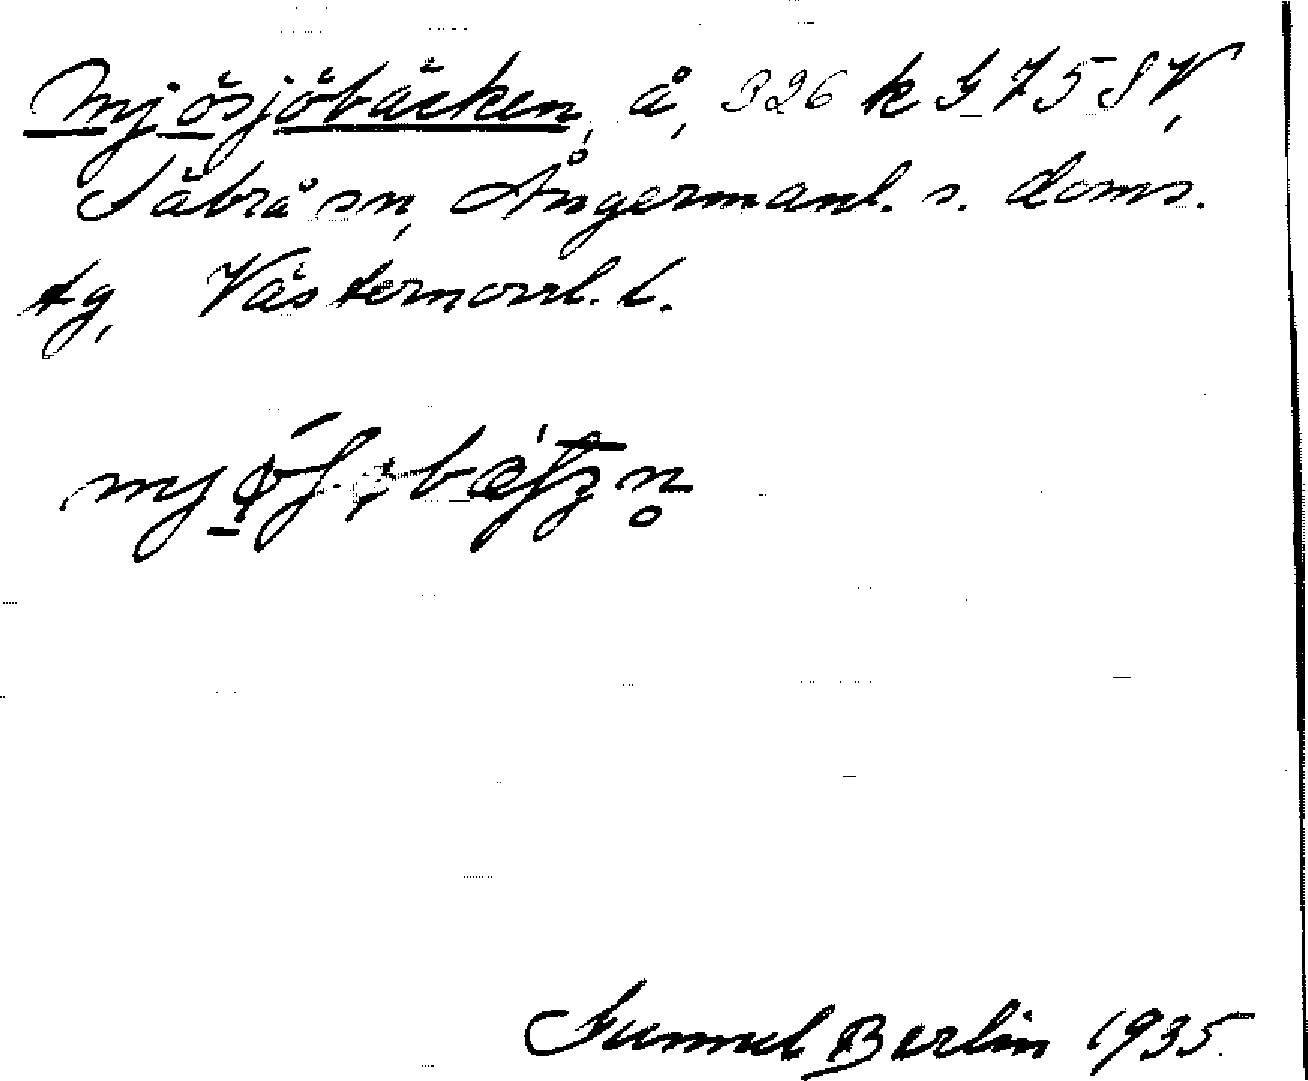 Mjösjöbäcken, å, 326 k G 75 SV,
Säbrå sn, Ångermanl. s. doms.
tg, Västernorrl. l.
Gunnel Berlin 1935.